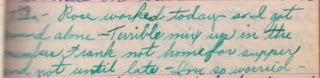 Rose worked today and got
around alone - Terrible mix up in the
Frank not home for supper
and not until late - I'm so worried -